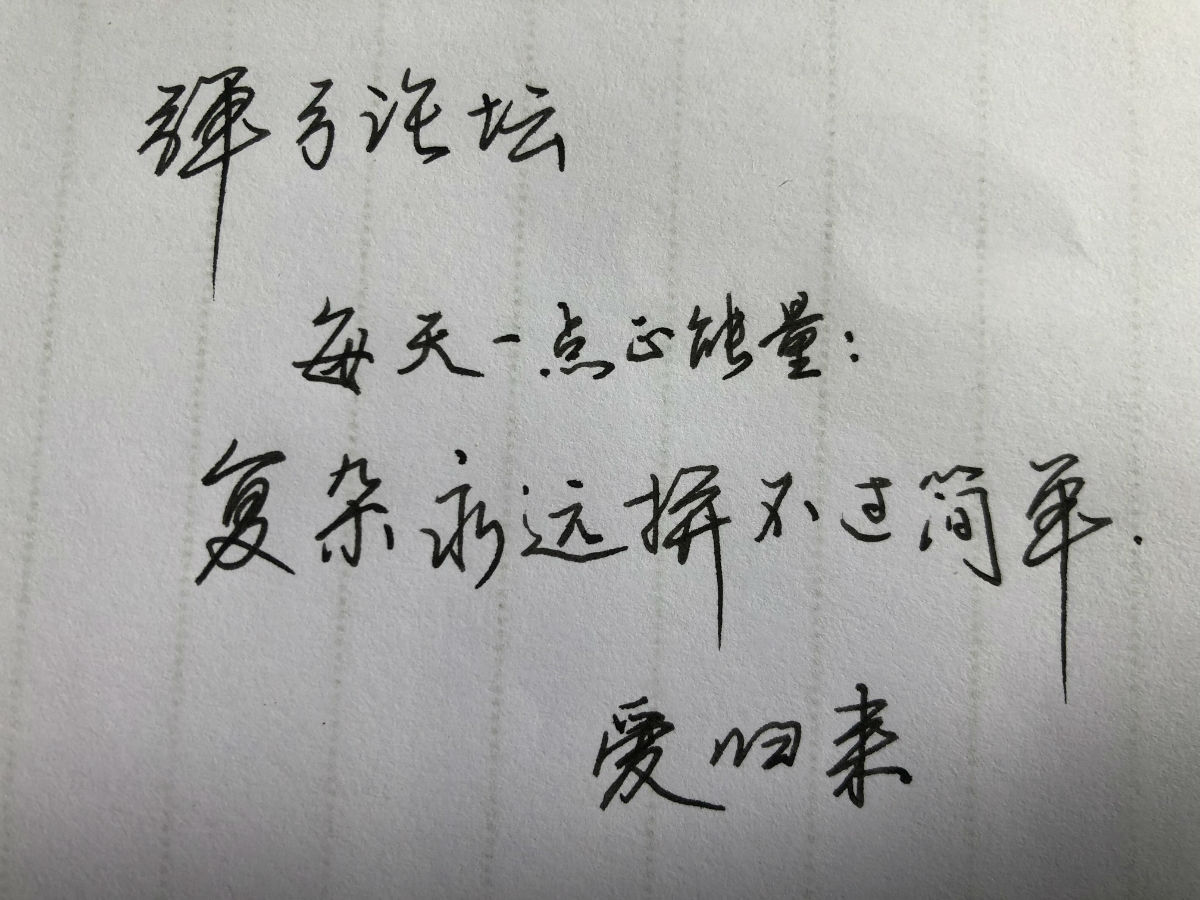 弹弓论坛
每天一点正能量：
复杂永远拼不过简单.
爱归来